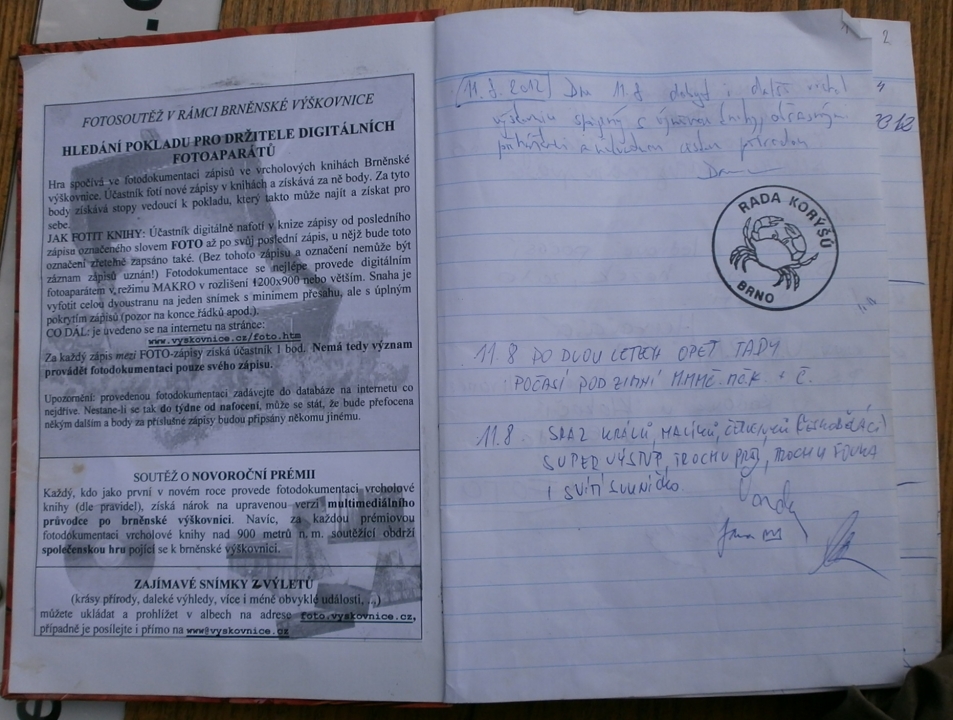 FOTOSOUTĚŽ V RÁMCI BRNĚNSKÉ VÝŠKOVNICE
HLEDÁNÍ POKLADU PRO DRŽITELE DIGITÁLNÍCH
FOTOAPARÁTŮ
Hra spočívá ve fotodokumentaci zápisů ve vrcholových knihách Brněnské
výškovnice. Účastník fotí nové zápisy v knihách a získává za ně body. Za tyto
body získává stopy vedoucí k pokladu, který takto může najít a získat pro
sebe.
JAK FOTIT KNIHY: Účastník digitálně nafotí v knize zápisy od posledního
zápisu označeného slovem FOTO až po svůj poslední zápis, u nějž bude toto
označení zřetelně zapsáno také. (Bez tohoto zápisu a označení nemůže být
záznam zápisů uznán!) Fotodokumentace se nejlépe provede digitálním
fotoaparátem v režimu MAKRO v rozlišení 1200x900 nebo větším. Snaha je
vyfotit celou dvoustranu na jeden snímek s minimem přesahu, ale s úplným
pokrytím zápisů (pozor na konce řádků apod.).
CO DÁL: je uvedeno se na internetu na stránce:
www.vyskovnice.cz/foto.htm
Za každý zápis mezi FOTO-zápisy získá účastník 1 bod. Nemá tedy význam
provádět fotodokumentaci pouze svého zápisu.
Upozornění: provedenou fotodokumentaci zadávejte do databáze na internetu co
nejdříve. Nestane-li se tak do týdne od nafocení, může se stát, že bude přefocena
někým dalším a body za příslušné zápisy budou připsány někomu jinému.
SOUTĚŽ O NOVOROČNÍ PRÉMII
Každý, kdo jako první v novém roce provede fotodokumentaci vrcholové
knihy (dle pravidel), získá nárok na upravenou verzi multimediálního
průvodce po brněnské výškovnici. Navíc, za každou prémiovou
fotodokumentaci vrcholové knihy nad 900 metrů n. m. soutěžící obdrží
společenskou hru pojící se k brněnské výškovnici.
ZAJÍMAVÉ SNÍMKY Z VÝLETŮ
(krásy přírody, daleké výhledy, více i méně obvyklé události, ...)
můžete ukládat a prohlížet v albech na adrese foto.vyskovnice.cz,
případně je posílejte i přímo na www@vyskovnice.cz
11.8.2012 Dne 11.8 dobyt i další vrchol
výškovnice spojený s výměnou knihy,
RADA KORÝŠŮ
BRNO
11.8 PO DVOU LETECH OPĚT TADY
POČASÍ PODZIMNÍ
11.8.
SUPER VÝSTUP, TROCHU PRŠÍ, TROCHU FOUKÁ
I SVÍTÍ SLUNÍČKO
2